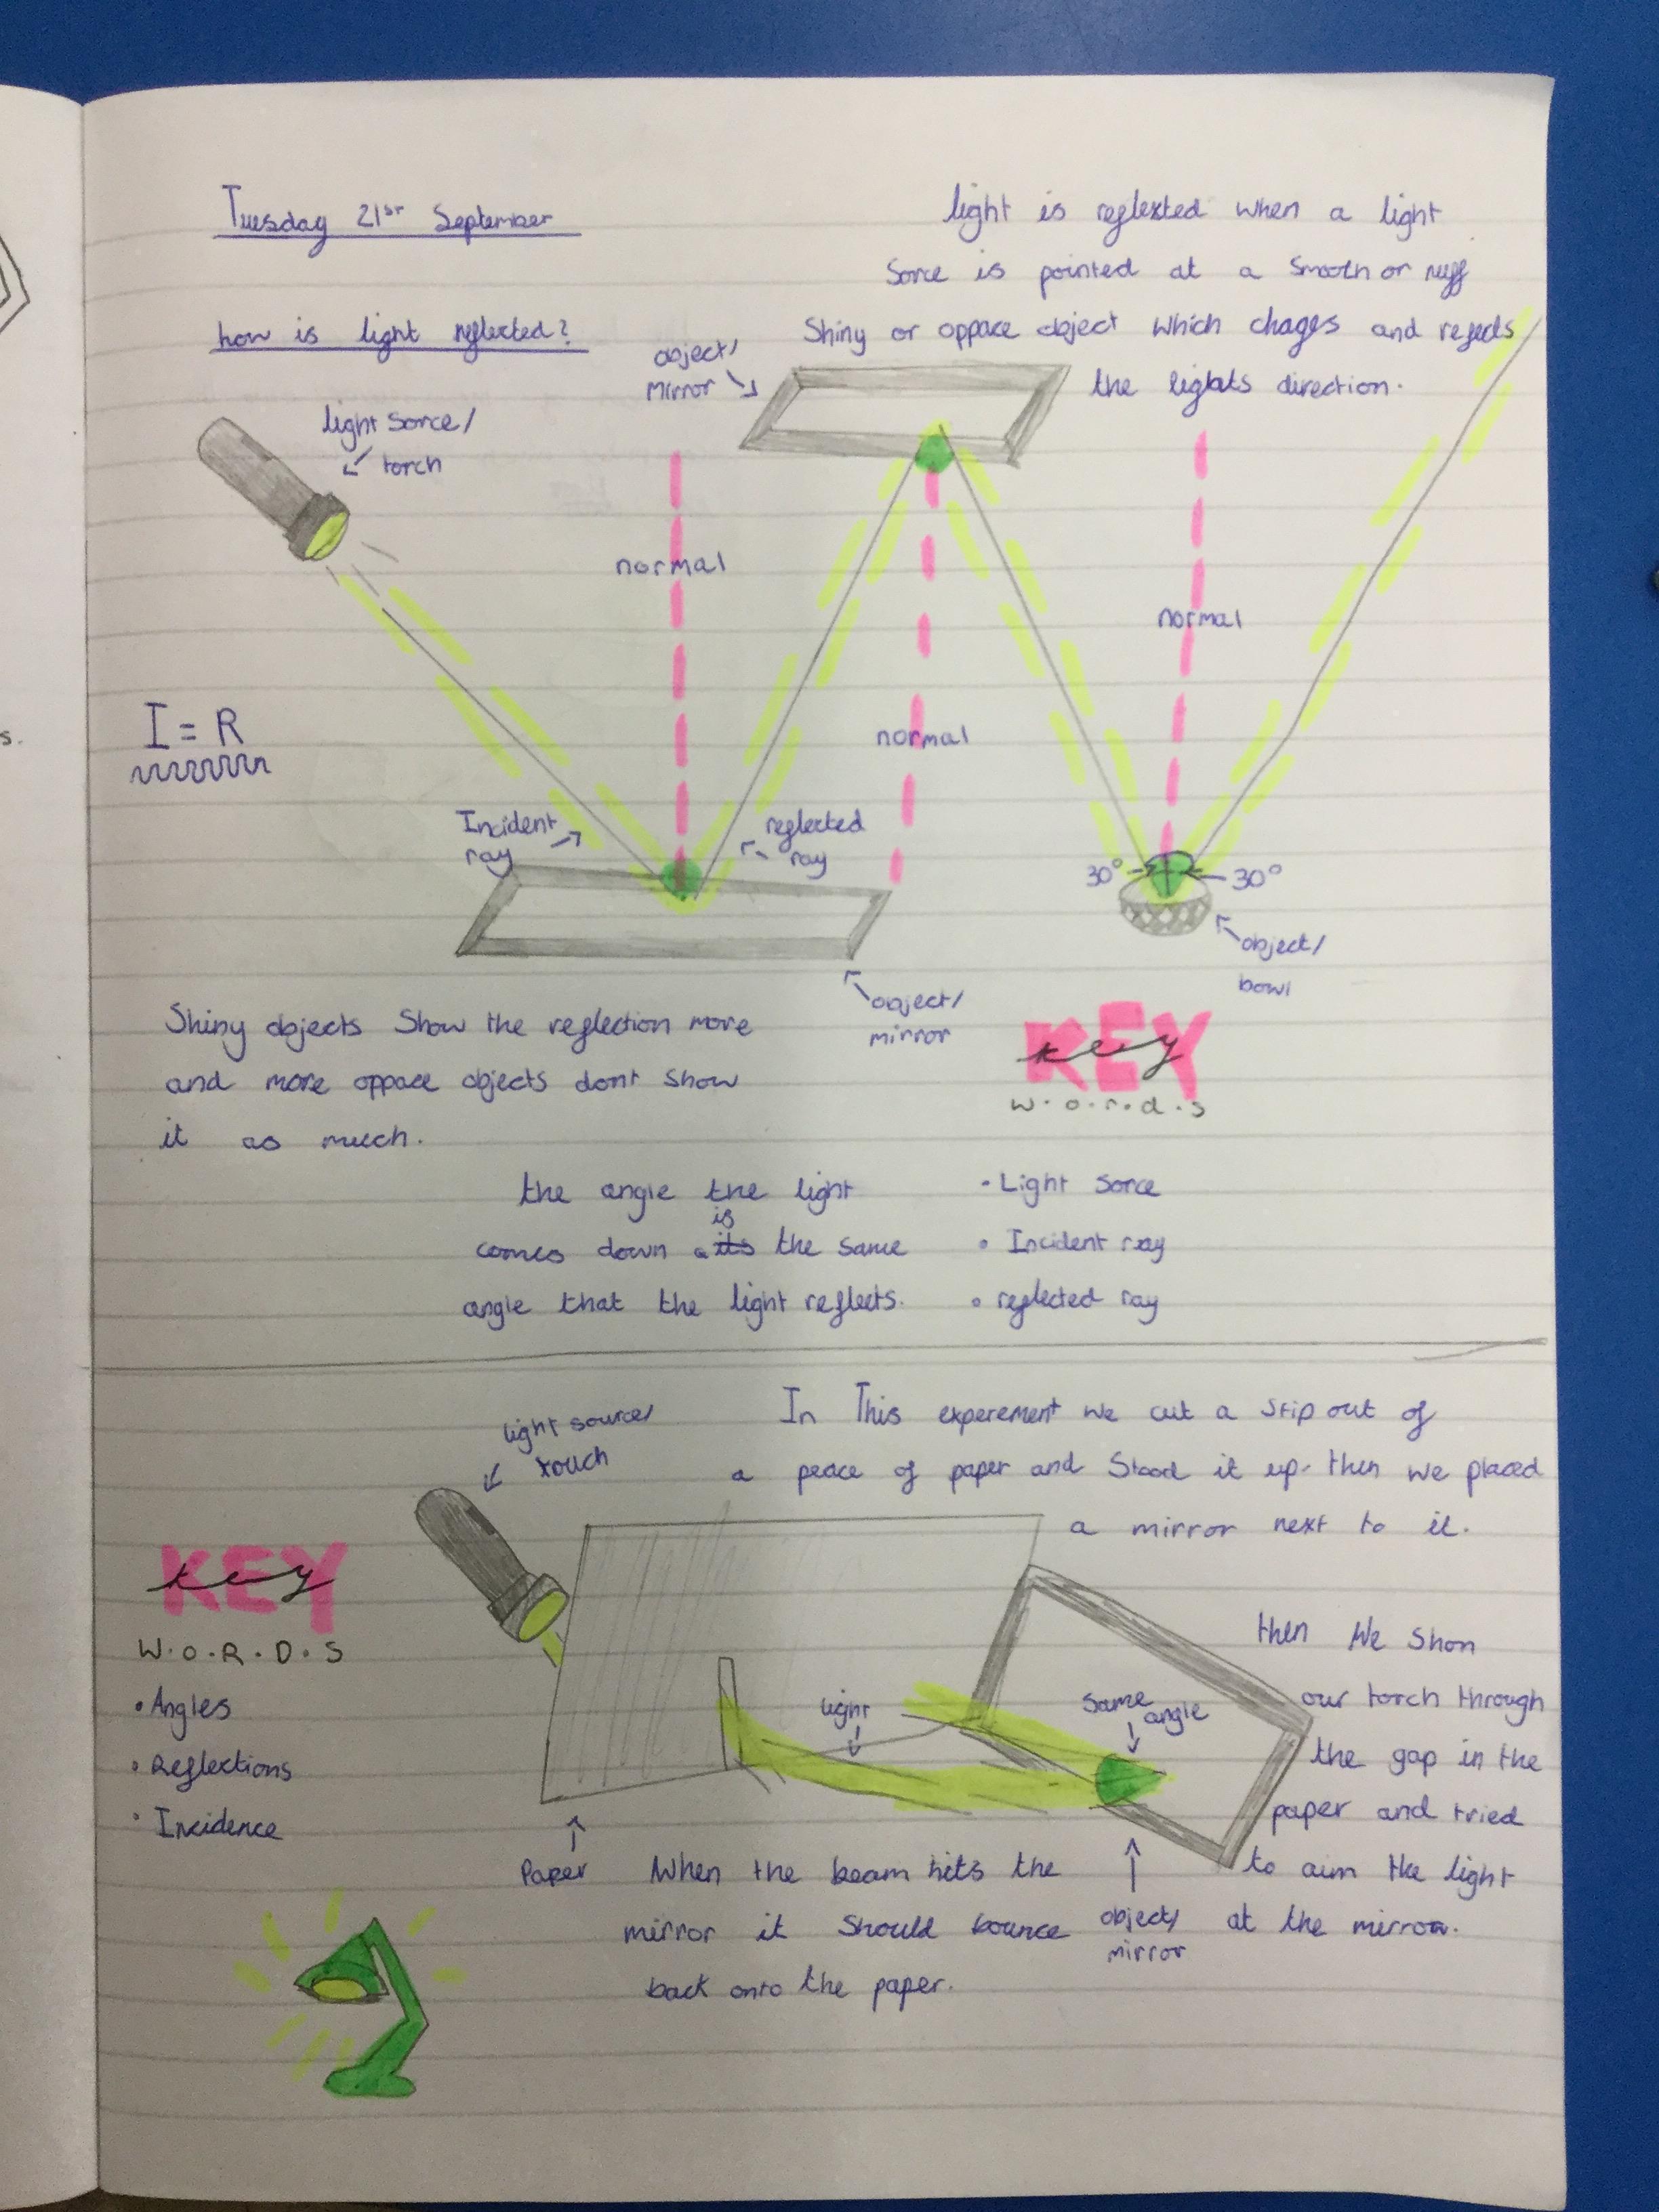 Tuesday 21st September
how is light reflected?
light is reflexted when a light
Sorce is pointed at a Smooth or ruff
Shiny or oppace object which chages and refects
the lights direction.
light Sorce/
torch
object/
mirror
normal
normal
normal
I = R
Incident
ray
reflected
ray
30°
30°
object/
bowl
object/
mirror
Shiny objects Show the reflection more
and more oppace objects dont Show
it as much.
KEY
key
w.o.r.d.s
the angle the light
is
comes down the same
angle that the light reflects.
• Light Sorce
• Incident ray
• reflected ray
In This experement we cut a Stip out of
a peace of paper and Stood it up. then we placed
a mirror next to it.
light source/
touch
KEY
key
W.O.R.D.S
• Angles
• Reflections
• Incidence
light
Same
angle
then We Shon
our torch through
the gap in the
paper and tried
to aim the light
at the mirror.
Paper
object/
mirror
When the beam hits the
mirror it Should bounce
back onto the paper.
s.